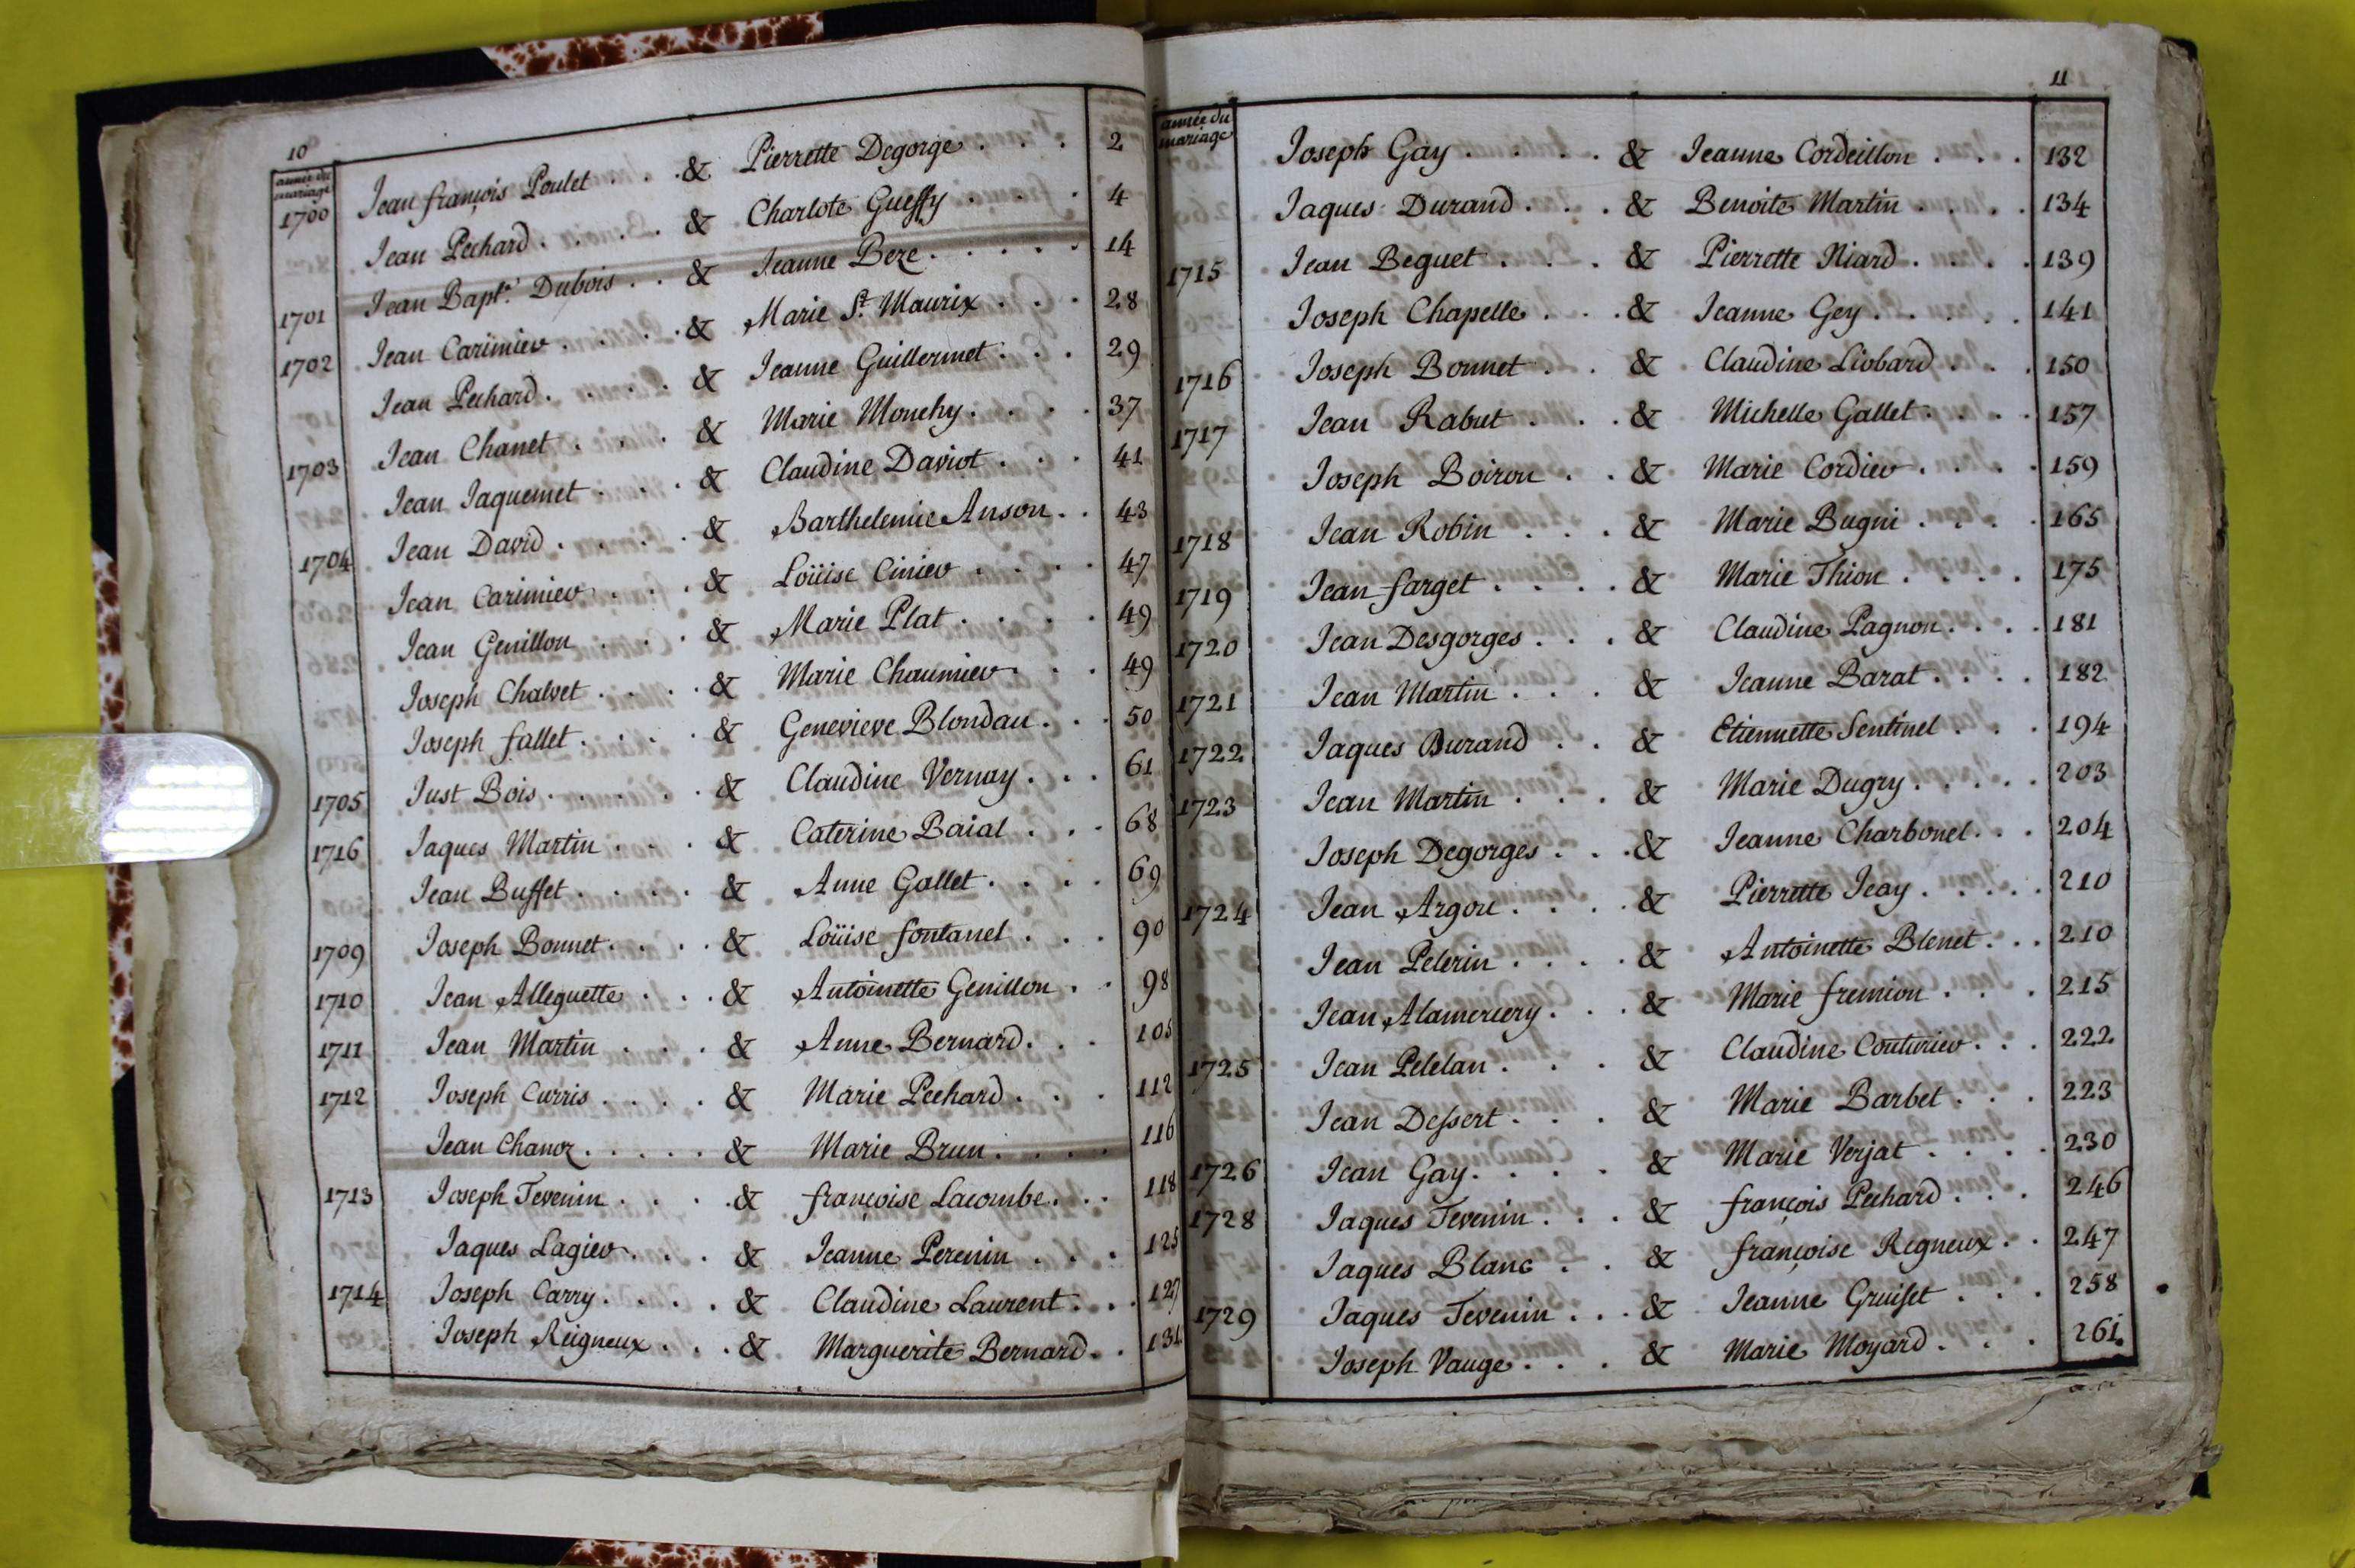 10
année du mariage
1700 Jean françois Poulet . . . & Pierrette Degorge . . . 2
Jean Pechard . . . . & Charlote Gueffy . . . . 4
1701 Jean Bapt.e Dubois . . & Jeanne Beze . . . . . 14
1702 Jean Carimier . . . . & Marie St. Maurix . . . 28
Jean Pechard . . . . & Jeanne Guillermet . . . 29
1703 Jean Chanet . . . . & Marie Mouchy . . . . 37
Jean Jaquemet . . . & Claudine Daviot . . . 41
1704 Jean David . . . . . & Barthelemie Anson . . 43
Jean Carimier . . . & Loüise Cinier . . . . 47
Jean Genillon . . . & Marie Plat . . . . . 49
Joseph Chalvet . . . . & Marie Chaumier . . . 49
Joseph fallet . . . . & Genevieve Blondau . . . 50
1705 Just Bois . . . . . . & Claudine Vernay . . . 61
1716 Jaques Martin . . . . & Caterine Baial . . . 68
Jean Buffet . . . . . & Anne Gallet . . . . 69
1709 Joseph Bonnet . . . . & Loüise fontanel . . . 90
1710 Jean Alleguette . . . & Antoinette Genillon . . 98
1711 Jean Martin . . . . & Anne Bernard . . . 105
1712 Joseph Curris . . . . & Marie Pechard . . . 112
Jean Chanor . . . . . & Marie Brun . . . . 116
1713 Joseph Tevenin . . . . & françoise Lacombe . . . 118
Jaques Lagier . . . & Jeanne Perenin . . . 125
1714 Joseph Carry . . . . & Claudine Laurent . . . 127
Joseph Reigneux . . . & Marguerite Bernard . . 131
11
année du mariage
Joseph Gay . . . . . & Jeanne Cordeillon . . . 132
Jaques Durand . . . & Benoite Martin . . . . 134
1715 Jean Beguet . . . . & Pierrette Niard . . . . 139
Joseph Chapelle . . . & Jeanne Gey . . . . . 141
1716 Joseph Bonnet . . & Claudine Liobard . . . 150
1717 Jean Rabut . . . & Michelle Gallet . . . . 157
Joseph Boiron . . & Marie Cordier . . . . 159
1718 Jean Robin . . . & Marie Bugni . . . . 165
1719 Jean farget . . . . & Marie Thion . . . . 175
1720 Jean Desgorges . . . & Claudine Pagnon . . . . 181
1721 Jean Martin . . . & Jeanne Barat . . . . 182
1722 Jaques Durand . . & Etiennette Sentinel . . . 194
1723 Jean Martin . . . & Marie Dugry . . . . . 203
Joseph Degorges . . . & Jeanne Charbonel . . . 204
1724 Jean Argou . . . . & Pierrette Jcay . . . . . 210
Jean Pelerin . . . . & Antoinette Blenet . . . 210
Jean Alamercery . . . & Marie fremion . . . . 215
1725 Jean Peletan . . . & Claudine Couturier . . . 222
Jean Dessert . . . & Marie Barbet . . . 223
1726 Jean Gay . . . . & Marie Verjat . . . . 230
1728 Jaques Tevenin . . . & françois Pechard . . . 246
Jaques Blanc . . & françoise Regneux . . 247
1729 Jaques Tevenin . . . & Jeanne Gruiset . . . 258
Joseph Vauge . . . & Marie Moyard . . . 261